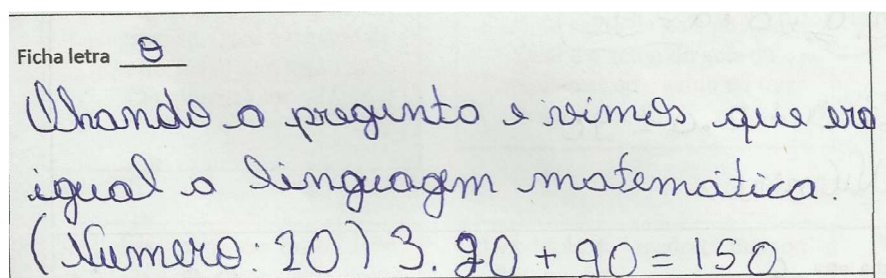 Ficha letra θ
Olhando a pregunta e vimos que era
igual a linguagem matemática.
(Numero: 20) 3. 20 + 90 = 150